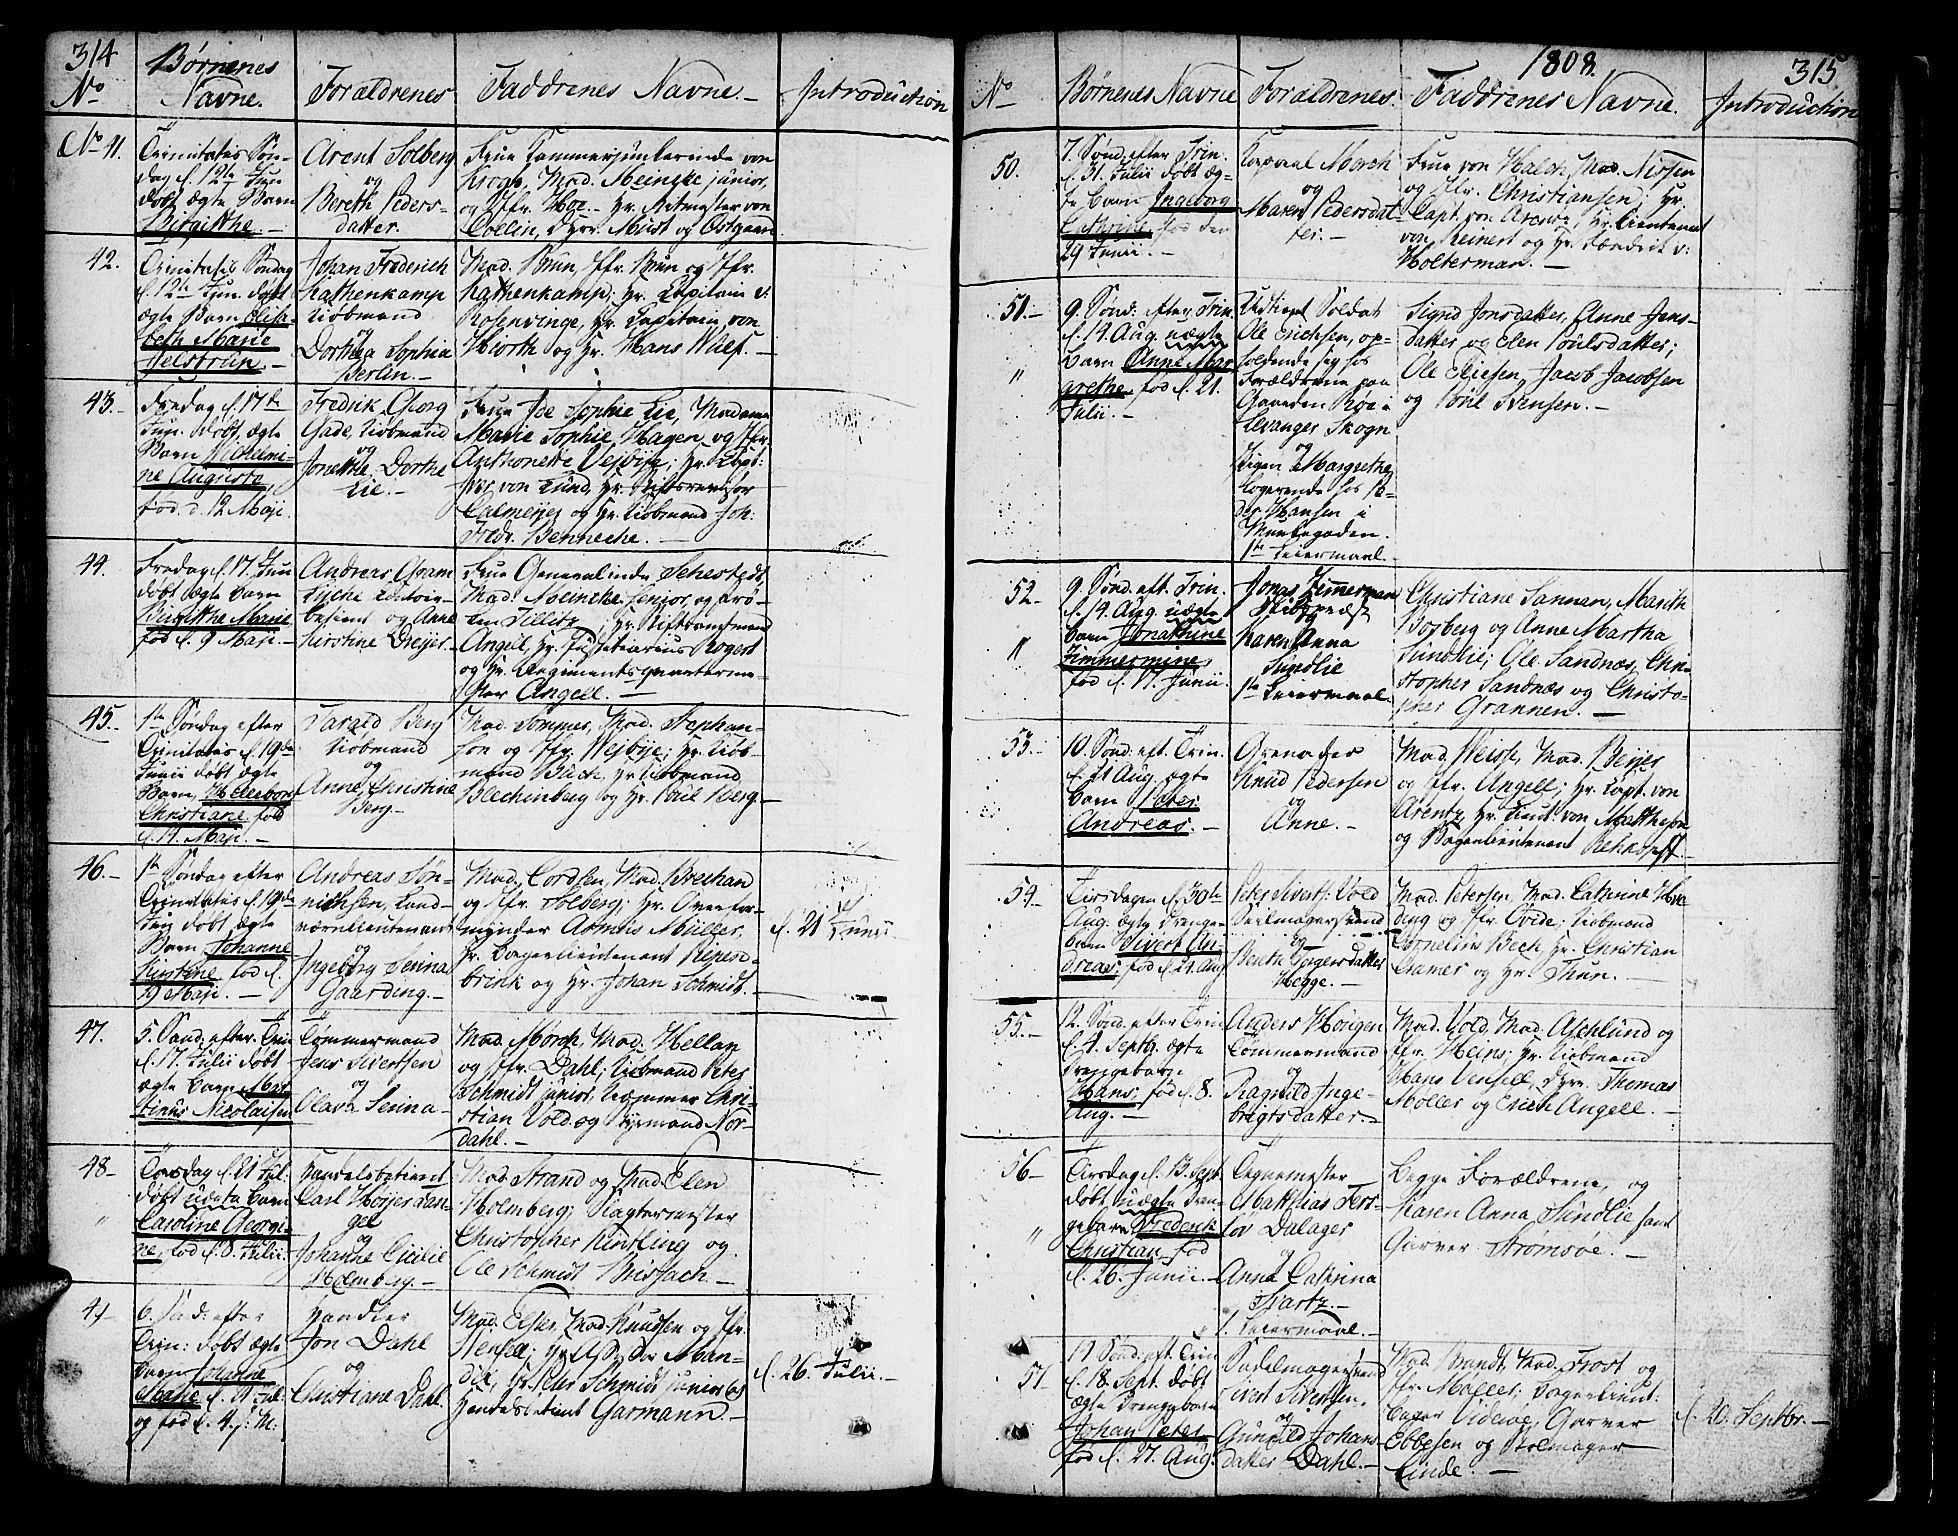 314
Børnenes
No Navne. Forældrenes Faddrenes Navne.— Introduction
No 41. Trinitatis Søn-
dag d. 12te Juni
døbt ægte Barn
Birgitthe.—
Arent Solberg
og
Bereth Peders-
datter.
Frue Kammerjunkerinde von
Krogh, Mad. Meincke junior,
og Jfr. Hoe.— Hr. Ritmester von
Coelln, Hrr. Must og Østgaard
42. Trinitatis Søndag
d. 12te Jun. døbt
ægte Barn Elisa-
beth Marie
Helstrun.—
Johan Frederich
Kathenkamp
Kiøbmand
og
Dorthea Sophia
Berlin.—
Mad. Brun, Jfr. Brun og Jfr.
Kathenkamp; Hr. Capitain v:
Rosenvinge, Hr. Capitain von
Hiorth og Hr. Hans Wulf.—
43.— Fredag d. 17de
Jun. døbt ægte
Barn Wilhelmi-
ne Augusta,
fød. d. 12 Maji.
Fredrik Georg
Gade, Kiøbmand
og
Jonetthe Dorthe
Lie.—
Frue Ide Sophie Lie, Madame
Marie Sophie Hagen og Jfr.
Anthonette Vejbye; Hr. Capt:
von Lund, Hr.
Calmeyer og Hr. Kiøbmand Joh:
Fredr. Benneche.—
44. Fredag d. 17. Juni
døbt ægte Barn
Birgitthe Marie
fød d. 9 Maji.—
Andreas Gram
Lyche Contoir-
betient og Anne
Kirstine Dreyer.
Frue Generalinde Sehestedt,
Mad. Meincke senior, og Frø-
ken Tillitz; Hr. Stiftamtmand
Angell, Hr. Justitiarius Rogert
og Hr. Regimentsqvarterme-
ster Angell.—
45.— 1te Søndag efter
Trinitatis d. 19de
Junii døbt ægte
Barn Helleborg
Christiane fød
d. 14. Maji.—
Tarald Berg
Kiøbmand
og
Anne Christine
Berg.—
Mad. Sommer, Mad. Stephan-
son og Jfr. Vejbye; Hr. Kiøb-
mand Bach, Hr. Kiøbmand
Blechinberg og Hr. Poul Berg.—
46.— 1te Søndag efter
Trinitatis d. 19de
Juny døbt ægte
Barn Johanne
Kirstine fød d.
19 Maji.—
Andreas Søn-
nichsen, Land-
værnlieutenant
og
Ingeborg Serina
Gaarding.—
Mad. Cordsen, Mad. Brechan
og Jfr. Solberg; Hr. Overfor-
mynder Asmus Müller,
Hr. Borgerlieutenant Riepen-
brink og Hr. Johan Schmidt.—
d. 21 Junii
47. 5. Sønd. efter. Trin
d. 17. Julii døbt
ægte Barn Mar-
tinus Nicolaisen
Tømmermand
Jens Sivertsen
og
Olava Serina.
Mad. Mørch, Mad. Hellan
og Jfr. Dahl; Kiøbmand Peter
Schmidt junior, Kræmmer Chri-
stian Vold og Styrmand Nor-
dahl.—
48— Torsdag d. 21 Jul:
døbt uægte Barn
" Caroline Georgi-
ne, fød d. 8. Julii.
Handelsbetient
Carl Høyer Dan-
gel
og
Johanne Cicilie
Holmberg.—
Mad. Strand og Mad. Elen
Holmberg; Kagtermester
Christopher Kintling og
Ole Schmidt Brissach.—
49— 6. Sønd: efter
Trin: døbt ægte
Barn Johanne
Marie d. 24. Jul:
og fød d. 4. j: M.
Handler
Jon Dahl
og
Christiane Dahl.
Mad. Elster, Mad. Knudsen og Jfr.
Wensell; Hr. Assessor Man-
dix, Hr. Peter Schmidt junior og
Handelsbetient Garmann.—
d. 26. Julii.—
1808. 315
No Børnenes Navne Forældrenes. Faddrenes Navne. Introduction
50. 7. Sønd. efter Trin.
d. 31. Julii døbt æg-
te Barn Ingeborg
Cathrine, fød den
29 Junii.—
Corporal Morch
og
Maren Pedersdat-
ter.—
Frue von Hald, Mad. Nissen
og Jfr. Christiansen; Hr.
Capt. von Arentz, Hr. Lieutenant
von Reinert og Hr. Fændrik v:
Holterman.—
51.— 9. Sønd: efter Trin.
d. 14. Aug. uægte
Barn Anne Mar-
" grethe, fød d. 21.
Julii.—
Udtient Soldat
Ole Erichsen, op-
holdende sig hos
Forældrene paa
Gaarden Roe i
Levanger Skogn
og
Pigen Margrethe
logerende hos Pe-
der Hansen i
Munkegaden.
1te Leiermaal.
Sigrid Jonsdatter, Anne Jens-
datter og Elen Poulsdatter;
Ole Eliesen, Jacob Jacobsen
og Poul Svensen.—
52.— 9. Sønd. eft. Trin.
d. 14. Aug. uægte
" Barn Jonathine
Zimmermine,
fød d. 17. Junii.
Jonas Zimmerman
Skibspræst
og
Karen Anna
Sundlie
1te Leiermaal.
Christiane Sannan, Marith
Borberg og Anne Martha
Sundlie; Ole Sandnæs, Chri-
stopher Sandnæs og Christo-
pher Grannen.—
53.— 10. Sønd. eft. Trin.
d. 21 Aug. ægte
Barn Peter
Andreas.—
Grenader
Knud Pedersen
og
Anne.—
Mad. Weisse, Mad. Beyer
og Jfr. Angell; Hr. Capt. von
Arentz, Hr. Lieut. von Mattheson
og Borgerlieutenant Rehkopff.—
54. Tirsdagen d. 30te
Aug. ægte Drenge-
barn Sivert An-
dreas, fød d. 21 Aug
Peter Sivertsen Vold
Seilmagersvend
og
Bereth Torgersdatter
Hegge.—
Mad. Petersen, Mad. Cathrine
og Jfr. Øvide; Kiøbmand
Cornelius Bech, Hr. Christian
Cramer og Hr. Thun.—
55.— 12. Sønd. efter Trin
d. 4. Septbr. ægte
Drengebarn
Hans, fød d. 8.
Aug.—
Anders Hougen
Tømmermand
og
Ragnild Inge-
brigtsdatter.—
Mad. Vold, Mad. Aschlund og
Jfr. Heins; Hr. Kiøbmand
Hans Vensell, Hrr. Thomas
Møller og Erich Angell.—
56— Tirsdag d. 13. Sept.
døbt uægte Dren-
" gebarn Frederik
Christian fød
d. 26. Junii.—
Tegnemester
Matthias Fers-
lov Dalager
og
Anna Cathrina
Svartz.—
1. Leiermaal.—
Begge Forældrene, og
Karen Anna Sundlie samt
Garver Strømsøe.—
57 14 Sønd. eft. Trin
d. 18. Sept. døbt
ægte Drengebarn
Johan Peter
fød d. 27. Aug.
Sadelmagersvend
Sivert Sivertsen
og
Gunild Johans-
datter Dahl.—
Mad. Brandt, Mad. Frost og
Jfr. Møller; Borgerlieut:
Bager Viderøe, Garver
Ebbesen og Stolmager
Linde.—
d. 20. Septbr.—